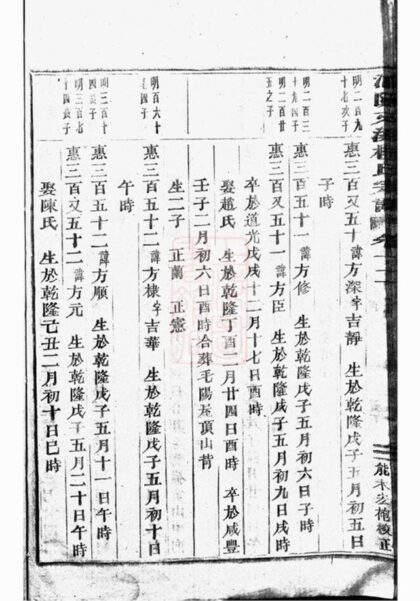 明二百九
十七次子
惠三百又五十 諱方深字吉靜 生於乾隆戊子五月初五日
子時
明二百三
十九四子
惠三百五十一 諱方修 生於乾隆戊子五月初六日子時
明二百廿
五之子
惠三百又五十一 諱方臣 生於乾隆戊子五月初九日戌時
卒於道光戊戌十二月十七日酉時
娶趙氏 生於乾隆丁酉二月廿四日酉時 卒於咸豐
壬子二月初六日酉時合葬毛陽屋頂山背
生二子 正蘭 正憲
明百六十
四子
惠三百五十二 諱方棣字吉華 生於乾隆戊子五月初十日
午時
明三百十
四長子
惠三百又五十二 諱方順 生於乾隆戊子五月十一日午時
明三百七
十四長子
惠三百又五十二 諱方元 生於乾隆戊子五月二十日午時
娶陳氏 生於乾隆己丑二月初十日巳時